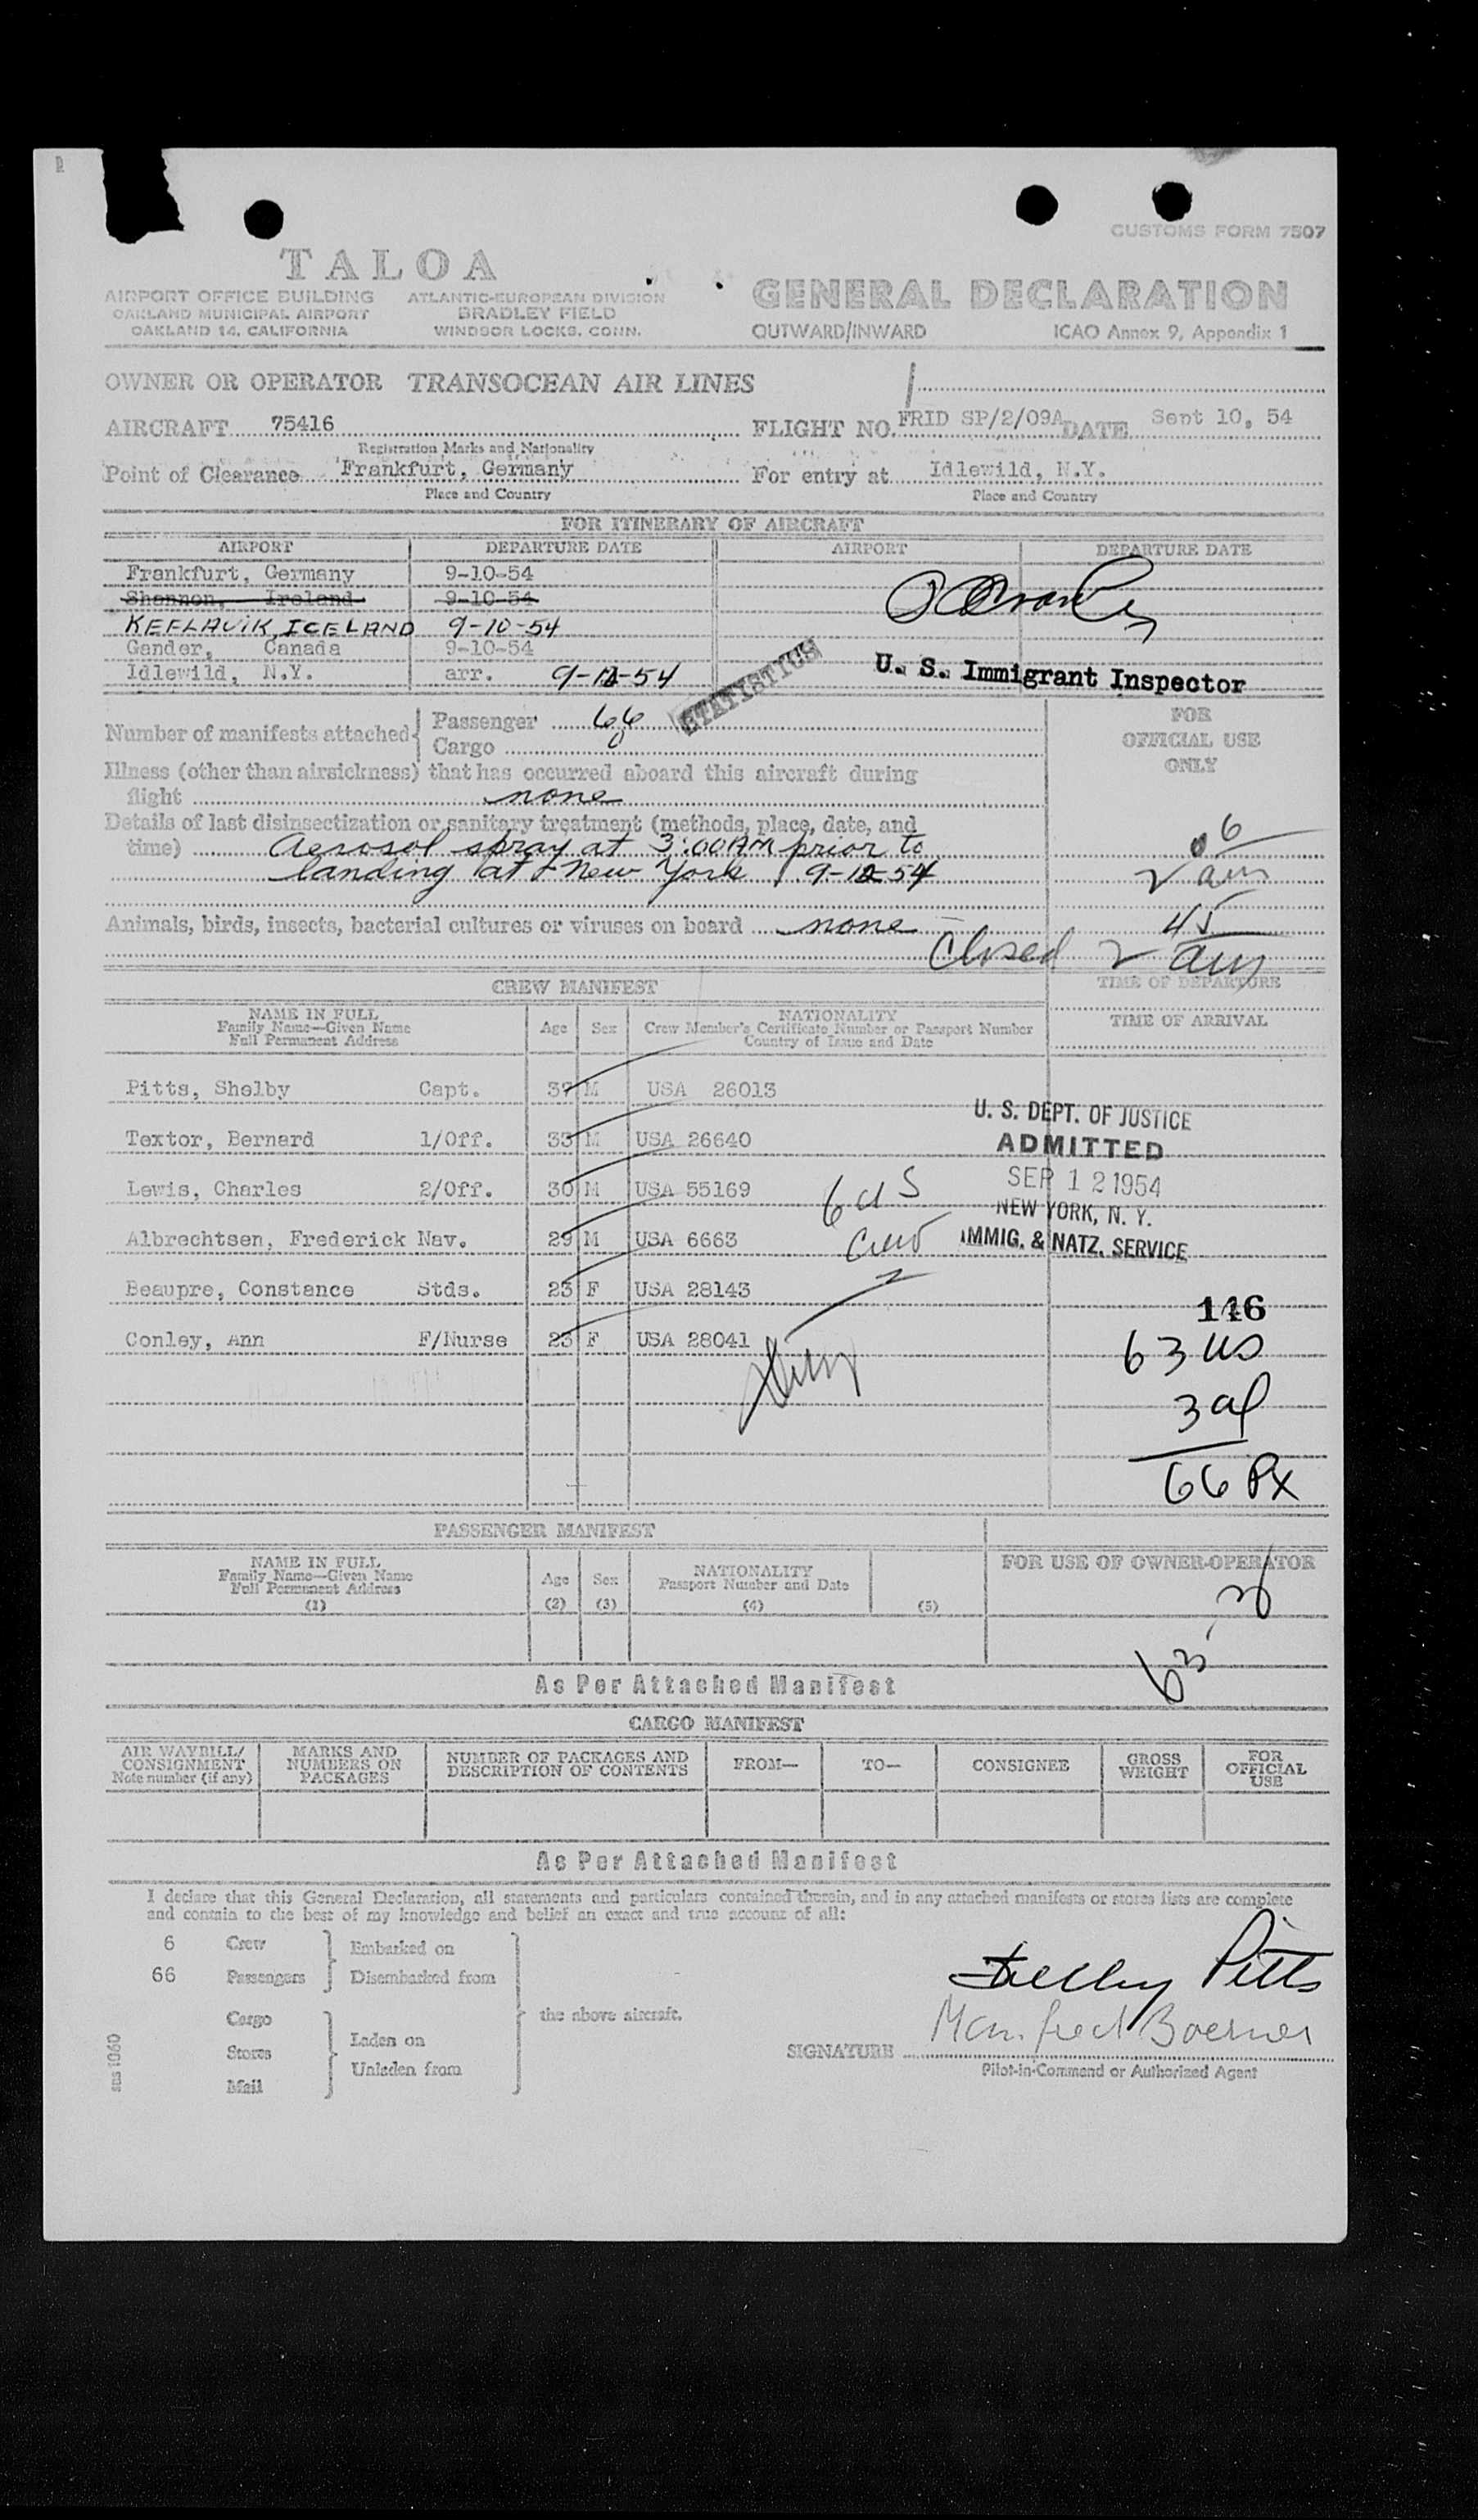 CUSTOMS FORM 7507
TALOA
AIRPORT OFFICE BUILDING
OAKLAND MUNICIPAL AIRPORT
OAKLAND 14, CALIFORNIA
ATLANTIC-EUROPEAN DIVISION
BRADLEY FIELD
WINDSOR LOCKS, CONN.
GENERAL DECLARATION
OUTWARD/INWARD ICAO Annex 9, Appendix 1
OWNER OR OPERATOR TRANSOCEAN AIR LINES
AIRCRAFT 75416 FLIGHT NO. FRID SP/2/09A DATE Sept 10, 54
Registration Marks and Nationality
Point of Clearance Frankfurt, Germany For entry at Idlewild, N.Y.
Place and Country Place and Country
FOR ITINERARY OF AIRCRAFT
AIRPORT DEPARTURE DATE AIRPORT DEPARTURE DATE
Frankfurt, Germany 9-10-54
Shannon, Ireland 9-10-54
KEFLAVIK, ICELAND 9-10-54
Gander, Canada 9-10-54
Idlewild, N.Y. arr. 9-12-54
U. S. Immigrant Inspector
STATISTICS
Number of manifests attached Passenger 66
Cargo
FOR
OFFICIAL USE
ONLY
Illness (other than airsickness) that has occurred aboard this aircraft during
flight none
Details of last disinsectization or sanitary treatment (methods, place, date, and
time) Aerosol spray at 3:00AM prior to
landing at New York 9-12-54
06
2 am
Animals, birds, insects, bacterial cultures or viruses on board none
45
Closed 2 am
CREW MANIFEST
TIME OF DEPARTURE
NAME IN FULL
Family Name—Given Name
Full Permanent Address
Age Sex
NATIONALITY
Crew Member's Certificate Number or Passport Number
Country of Issue and Date
TIME OF ARRIVAL
Pitts, Shelby Capt. 37 M USA 26013
Textor, Bernard 1/Off. 33 M USA 26640
Lewis, Charles 2/Off. 30 M USA 55169
Albrechtsen, Frederick Nav. 29 M USA 6663
Beaupre, Constance Stds. 23 F USA 28143
Conley, Ann F/Nurse 23 F USA 28041
6 US
Crew
U. S. DEPT. OF JUSTICE
ADMITTED
SEP 12 1954
NEW YORK, N. Y.
IMMIG. & NATZ. SERVICE
146
63 US
3 al
66 Px
PASSENGER MANIFEST
NAME IN FULL
Family Name—Given Name
Full Permanent Address
(1)
Age
(2)
Sex
(3)
NATIONALITY
Passport Number and Date
(4)
(5)
FOR USE OF OWNER-OPERATOR
As Per Attached Manifest
CARGO MANIFEST
AIR WAYBILL/
CONSIGNMENT
Note number (if any)
MARKS AND
NUMBERS ON
PACKAGES
NUMBER OF PACKAGES AND
DESCRIPTION OF CONTENTS
FROM—
TO—
CONSIGNEE
GROSS
WEIGHT
FOR
OFFICIAL
USE
As Per Attached Manifest
I declare that this General Declaration, all statements and particulars contained therein, and in any attached manifests or stores lists are complete
and contain to the best of my knowledge and belief an exact and true account of all:
6 Crew Embarked on
66 Passengers Disembarked from
Cargo
the above aircraft.
Stores Laden on
Mail Unladen from
Shelby Pitts
Manfred Boerner
SIGNATURE
Pilot-in-Command or Authorized Agent